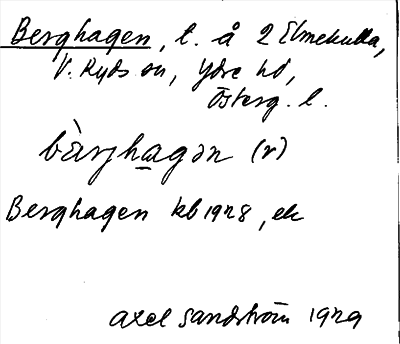 Berghagen, t. å 2 Elmekulla,
V. Ryds sn, Ydre hd,
Österg. l.
bàrjhagən (r)
Berghagen kb 1928, ek
Axel Sandström 1929